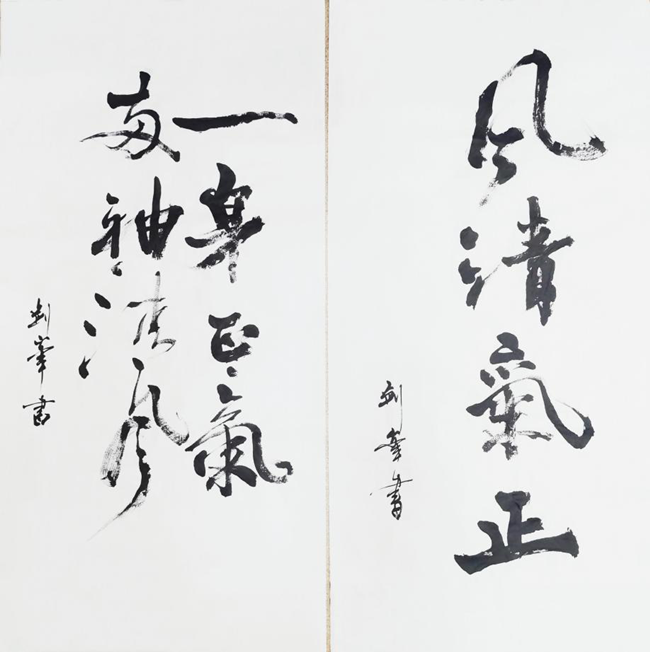 風清氣正
劍峯書
一身正氣
兩袖清風
劍峯書